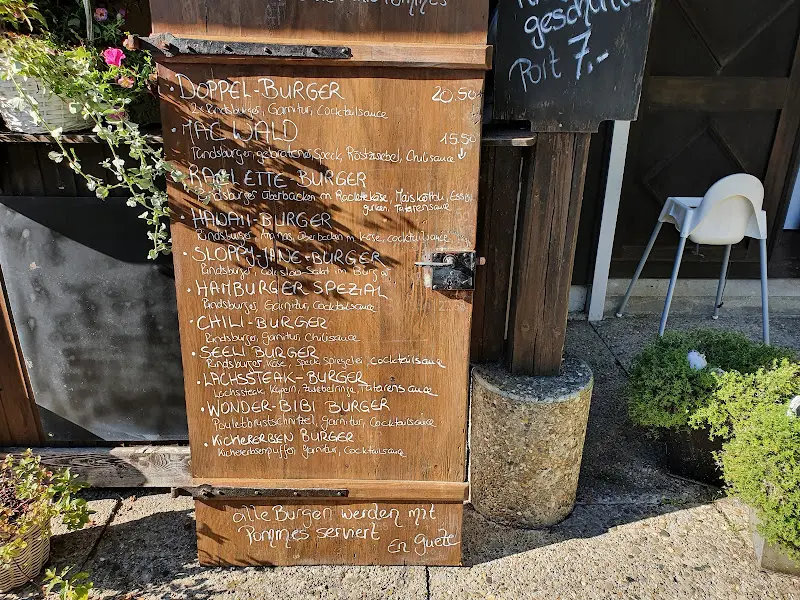 geschnetz
Port 7.-
• DOPPEL-BURGER 20.50
2x Rindsburger, Garnitur, Cocktailsauce
• MAC WALD 15.50
Rindsburger, gebratener Speck, Röstzwiebel, Chilisauce ↓
• RACLETTE BURGER
Rindsburger überbacken m. Raclettekäse, Maiskölbli, Essig
gurken, Tatarensauce
• HAWAII-BURGER
Rindsburger, Ananas, überbacken m. Käse, Cocktailsauce
• SLOPPY-JANE-BURGER
Rindsburger, Coleslaw-Salat im Burger
• HAMBURGER SPEZIAL
Rindsburger, Garnitur, Cocktailsauce
• CHILI-BURGER
Rindsburger, Garnitur, Chilisauce
• SEELI BURGER
Rindsburger, Käse, Speck, Spiegelei, Cocktailsauce
• LACHSSTEAK-BURGER
Lachssteak, Kapern, Zwiebelringe, Tatarensauce
• WONDER-BIBI BURGER
Pouletbrustschnitzel, Garnitur, Cocktailsauce
• KICHERERBSEN BURGER
Kichererbsenpuffer, Garnitur, Cocktailsauce
alle Burger werden mit
Pommes serviert
En guete